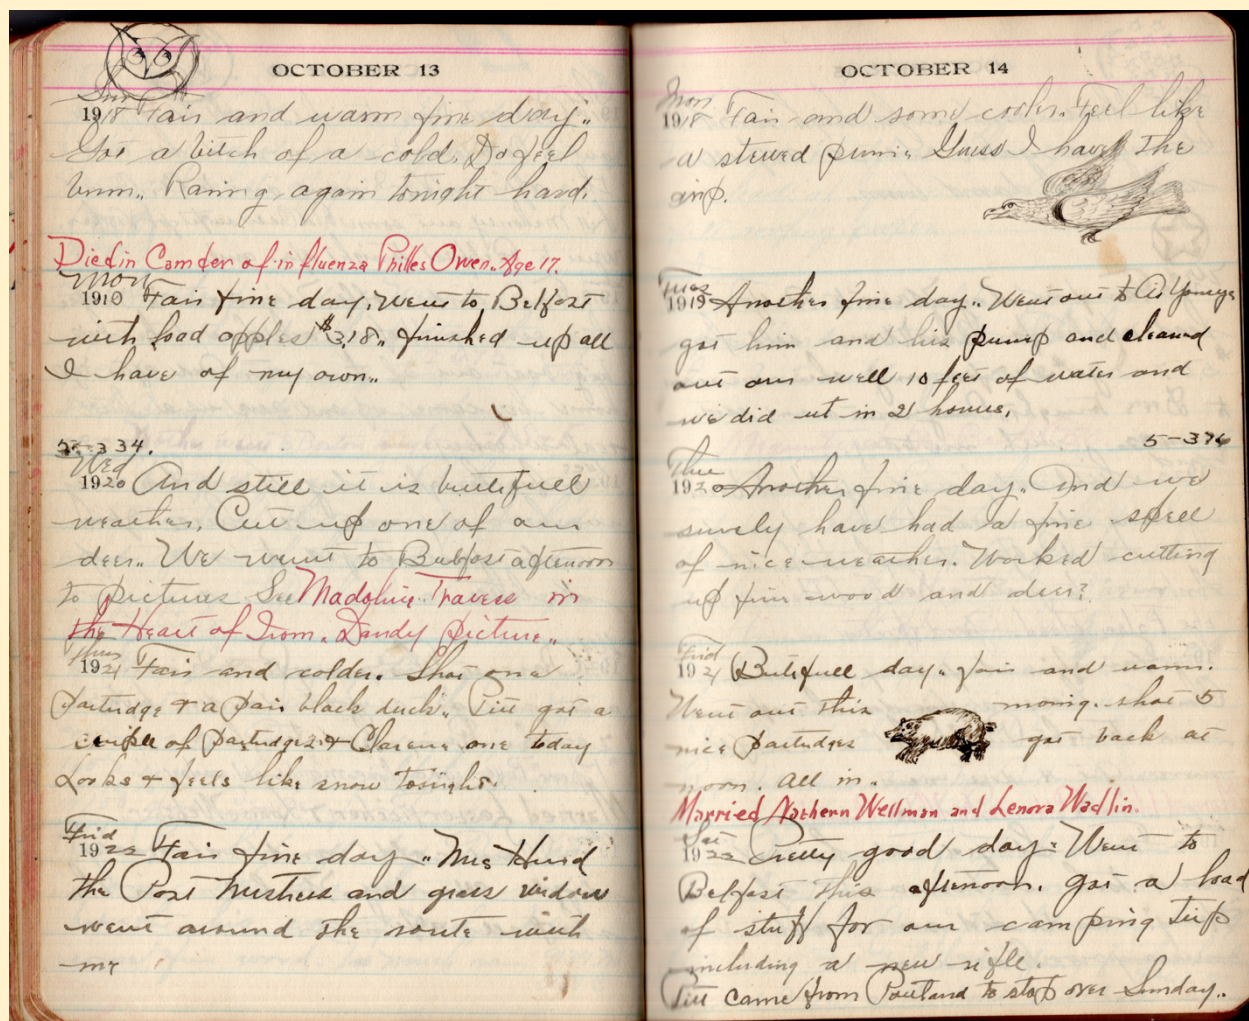 OCTOBER 13
Sun
1918 Fair and warm fine day..
Got a bitch of a cold. Do feel
bum.. Raining again tonight hard.
Died in Camden of influenza Philles Owen.. Age 17.
Mon
1919 Fair fine day. Went to Belfast
with load apples $3.18.. finished up all
I have of my own..
334.
Wed
1920 And still it is beutifull
weather. Cut up one of our
deer.. We went to Belfast afternoon
to pictures See Madaline Travese in
the Heart of Irom. Dandy picture..
Thus
1921 Fair and colder. Shot one
partridge & a pair black duck.. Pitt got a
couple of partridges & Clarence one today
Looks & feels like snow tonight.
Frid
1922 Fair fine day.. Mrs Hurd
the Post Mistress and grass widow
went around the route with
me
OCTOBER 14
Mon
1918 Fair and some cooler. Feel like
a stewed prune Guess I have the
grip.
Tues
1919 Another fine day.. Went out to
got him and his pump and cleaned
out our well 10 feet of water and
we did it in 2 houres.
5-376
Thu
1920 Another fine day. And we
surely have had a fine spell
of nice weather. Worked cutting
up fire wood and deer?
Frid
1921 Butifull day.. fair and warm.
Went out this morning. shot 5
nice partridges got back at
noon. all in..
Married Nathern Wellman and Lenora Wadlin.
Sat
1922 Pretty good day. Went to
Belfast this afternoon. got a load
of stuff for our camping trip
including a new rifle.
Pitt came from Portland to stop over Sunday..